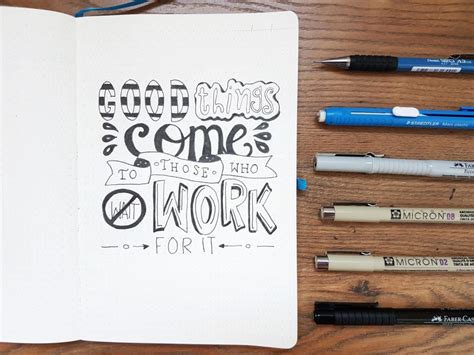 GOOD things
come
TO THOSE WHO
WAIT WORK
FOR IT
STAEDTLER
MICRON 08
MICRON 02
FABER-CAS